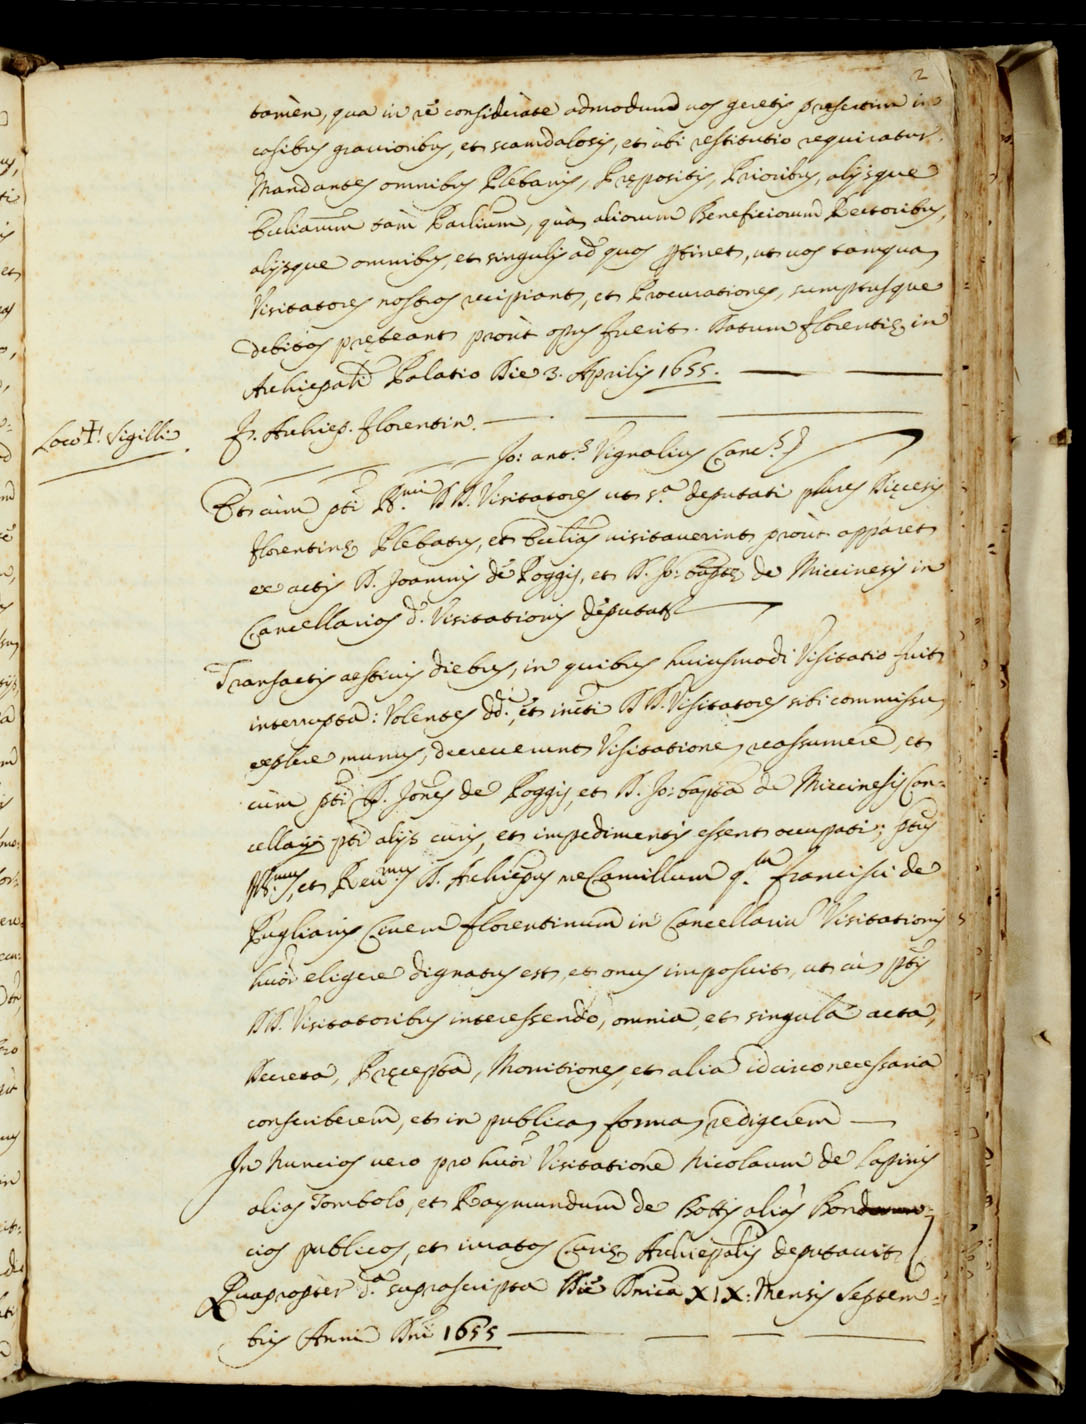 2
tamèn, qua in rè considerate admodum uos geretis presertim in
casibus grauioribus, et scandalosis, et ubi restitutio requiratur.
Mandantes omnibus Plebanis, Prępositis, Prioribus, alijsque
Ecclianum tam Parlium, quà aliorum Beneficiorum Rectoribus,
alijsque omnibus, et singulis ad quos ptinet, ut uos tamqua
Visitatores nostros recipiant, et Procurationes, sumptusque
debitos pręteant proùt opus fuerit. Datum florentię in
Archiepali Palatio Die 3. Aprilis 1655.
Loco ✝ Sigilli
fr. Archiep. florentin.
Jo: ant.s Vignalius Canc.s
Et cùm pti Ill.mi DD. Visitatores ut s.a deputati plures Diecesis
florentinę Plebatus, et Ecclias uisitauerint proùt apparet
ex actis D. Joannis de Poggis, et D. Jo: baptę de Miccinesis in
Cancellarios d. Visitationis deputat
Transactis aestiuis diebus, in quibus huiusmodi Visitatio fuit
interrupta: Volentes dd.i, et incti DD. Visitatores sibi commissu
explere munus, decreuerunt Visitatione reassumere, et
cùm pti D. Jones de Poggis, et D. Jo: bapta de Miccinesis Can=
cellarij pti alijs curis, et impedimentis essent occupati; ptus
Ill.mus, et Reu.mus D. Archiepus me Camillum q.m francisci de
Puglianis Ciuem florentinum in Cancellariu Visitationis
huiòi eligere dignatus est, et onus imposuit, ut cù ptis
DD. Visitatoribus interessendo, omnia, et singula acta,
Decreta, Pręcepta, Monitiones, et alia idcirco necessaria
conscriberem, et in publica forma redigerem
In Nuncios uero pro huiòi Visitatione Nicolaum de Lapinis
alias Tombolo, et Raymundum de Bottis alias Bon
cios publicos, et iuratos Curię Archiepalis deputauit
Quapropter d.a suprascripta Die Dnica XIX: Mensis Septem=
bris Anni Dni 1655